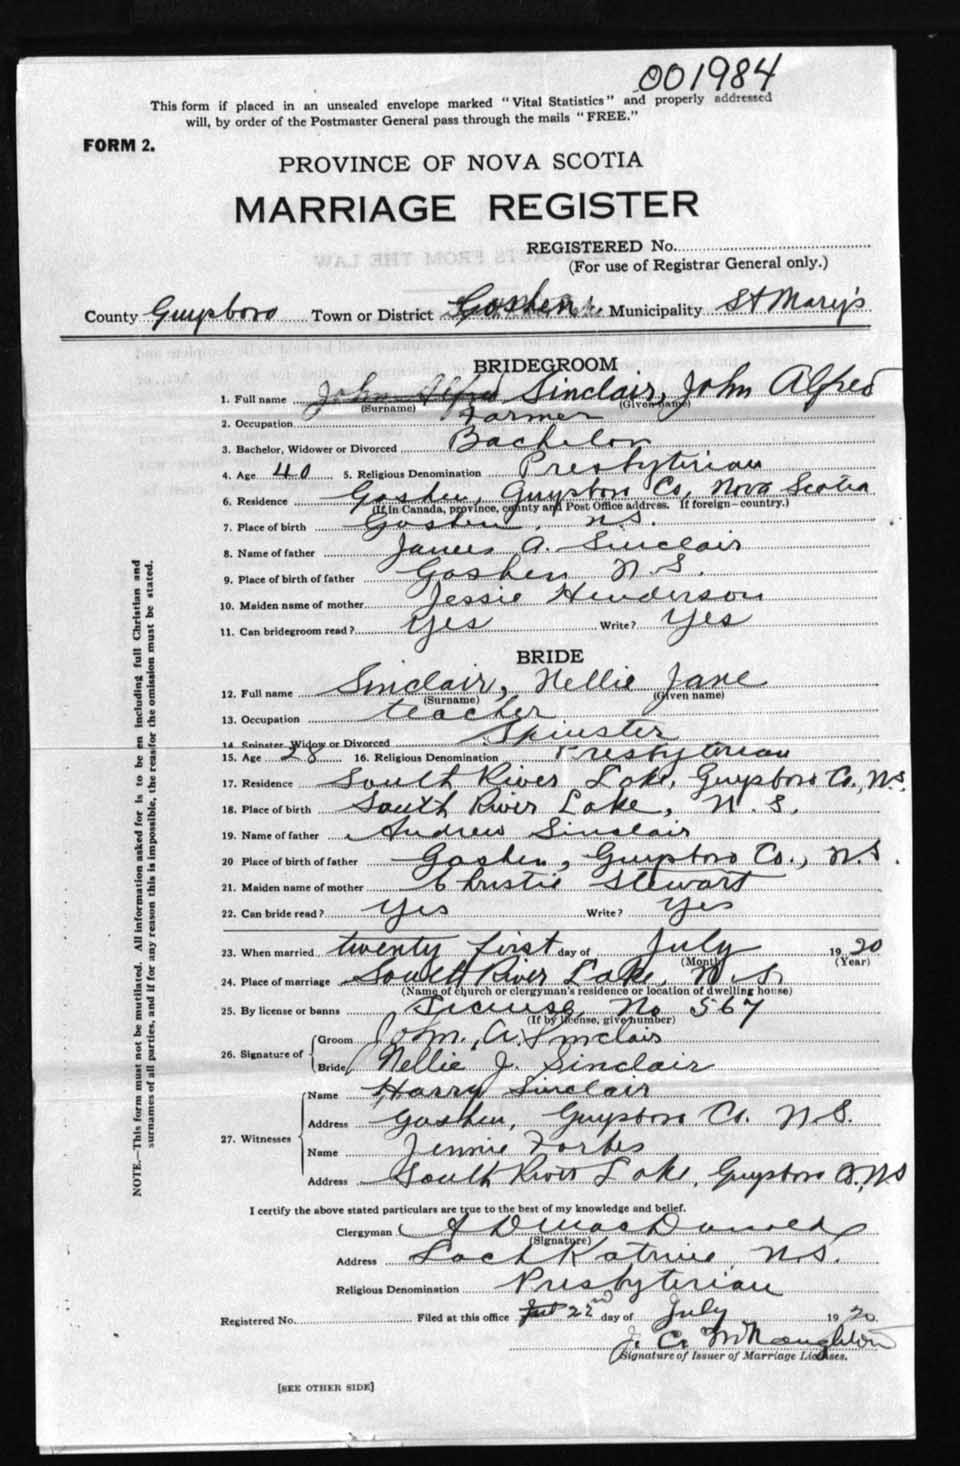 001984
This form if placed in an unsealed envelope marked "Vital Statistics" and properly addressed
will, by order of the Postmaster General pass through the mails "FREE."
FORM 2.
PROVINCE OF NOVA SCOTIA
MARRIAGE REGISTER
REGISTERED No.
(For use of Registrar General only.)
County Guysboro Town or District Goshen Municipality St Mary's
BRIDEGROOM
1. Full name John Alfred Sinclair, John Alfred
(Surname) (Given name)
2. Occupation Farmer
3. Bachelor, Widower or Divorced Bachelor
4. Age 40 5. Religious Denomination Presbyterian
6. Residence Goshen, Guysboro Co, Nova Scotia
(If in Canada, province, county and Post Office address. If foreign—country.)
7. Place of birth Goshen, N.S.
8. Name of father James A. Sinclair
9. Place of birth of father Goshen N.S.
10. Maiden name of mother Jessie Henderson
11. Can bridegroom read? Yes Write? Yes
BRIDE
12. Full name Sinclair, Nellie Jane
(Surname) (Given name)
13. Occupation teacher
14. Spinster, Widow or Divorced Spinster
15. Age 28 16. Religious Denomination Presbyterian
17. Residence South River Lake, Guysboro Co., N.S.
18. Place of birth South River Lake, N.S.
19. Name of father Andrew Sinclair
20 Place of birth of father Goshen, Guysboro Co., N.S.
21. Maiden name of mother Christie Stewart
22. Can bride read? Yes Write? Yes
23. When married twenty first day of July 1920
(Month) (Year)
24. Place of marriage South River Lake, N.S.
(Name of church or clergyman's residence or location of dwelling house)
25. By license or banns License No 567
(If by license, give number)
26. Signature of Groom John. A. Sinclair
Bride Nellie J. Sinclair
27. Witnesses Name Harry Sinclair
Address Goshen, Guysboro Co. N.S.
Name Jennie Forbes
Address South River Lake, Guysboro Co, N.S
I certify the above stated particulars are true to the best of my knowledge and belief.
Clergyman A D MacDonald
(Signature)
Address Loch Katrine, N.S.
Religious Denomination Presbyterian
Registered No. Filed at this office 22nd day of July 1920.
J. C. McNaughton
Signature of Issuer of Marriage Licenses.
[SEE OTHER SIDE]
NOTE.—This form must not be mutilated. All information asked for is to be en including full Christian and
surnames of all parties, and if for any reason this is impossible, the reason for the omission must be stated.